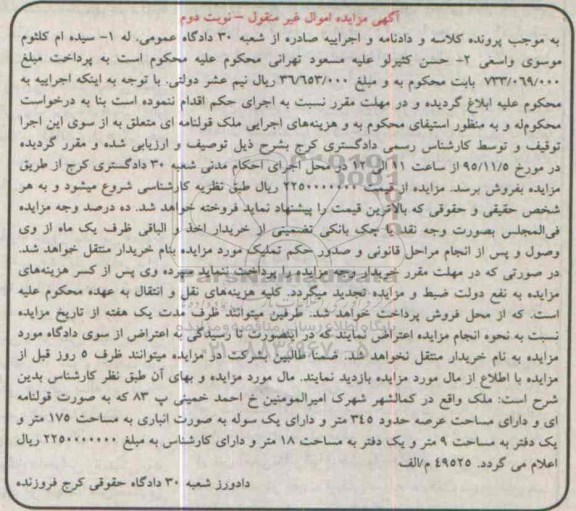 آگهی مزایده اموال غیر منقول – نوبت دوم
به موجب پرونده کلاسه و دادنامه و اجراییه صادره از شعبه ۳۰ دادگاه عمومی. له ۱- سیده ام کلثوم
موسوی واسعی ۲- حسن کثیرلو علیه مسعود تهرانی محکوم علیه محکوم است به پرداخت مبلغ
۷۳۳/۰۶۹/۰۰۰ بابت محکوم به و مبلغ ۳۶/۶۵۳/۰۰۰ ریال نیم عشر دولتی. با توجه به اینکه اجراییه به
محکوم علیه ابلاغ گردیده و در مهلت مقرر نسبت به اجرای حکم اقدام ننموده است بنا به درخواست
محکوم‌له و به منظور استیفای محکوم به و هزینه‌های اجرایی ملک قولنامه ای متعلق به از سوی این اجرا
توقیف و توسط کارشناس رسمی دادگستری کرج بشرح ذیل توصیف و ارزیابی شده و مقرر گردیده
در مورخ ۹۵/۱۱/۵ از ساعت ۱۱ الی ۱۲ در محل اجرای احکام مدنی شعبه ۳۰ دادگستری کرج از طریق
مزایده بفروش برسد. مزایده از قیمت ۲۲۵۰۰۰۰۰۰۰ ریال طبق نظریه کارشناسی شروع میشود و به هر
شخص حقیقی و حقوقی که بالاترین قیمت را پیشنهاد نماید فروخته خواهد شد. ده درصد وجه مزایده
فی‌المجلس بصورت وجه نقد یا چک بانکی تضمینی از خریدار اخذ و الباقی ظرف یک ماه از وی
وصول و پس از انجام مراحل قانونی و صدور حکم تملیک مورد مزایده بنام خریدار منتقل خواهد شد.
در صورتی که در مهلت مقرر خریدار وجه مزایده را پرداخت ننماید سپرده وی پس از کسر هزینه‌های
مزایده به نفع دولت ضبط و مزایده تجدید میگردد. کلیه هزینه‌های نقل و انتقال به عهده محکوم علیه
است. که از محل فروش پرداخت خواهد شد. طرفین میتوانند ظرف مدت یک هفته از تاریخ مزایده
نسبت به نحوه انجام مزایده اعتراض نمایند که در اینصورت تا رسیدگی به اعتراض از سوی دادگاه مورد
مزایده به نام خریدار منتقل نخواهد شد. ضمنا طالبین بشرکت در مزایده میتوانند ظرف ۵ روز قبل از
مزایده با اطلاع از مال مورد مزایده بازدید نمایند. مال مورد مزایده و بهای آن طبق نظر کارشناس بدین
شرح است: ملک واقع در کمالشهر شهرک امیرالمومنین خ احمد خمینی پ ۸۳ که به صورت قولنامه
ای و دارای مساحت عرصه حدود ۳۴۵ متر و دارای یک سوله به صورت انباری به مساحت ۱۷۵ متر و
یک دفتر به مساحت ۹ متر و یک دفتر به مساحت ۱۸ متر و دارای کارشناس به مبلغ ۲۲۵۰۰۰۰۰۰۰ ریال
اعلام می گردد. ۴۹۵۲۵ م/الف
دادورز شعبه ۳۰ دادگاه حقوقی کرج فروزنده